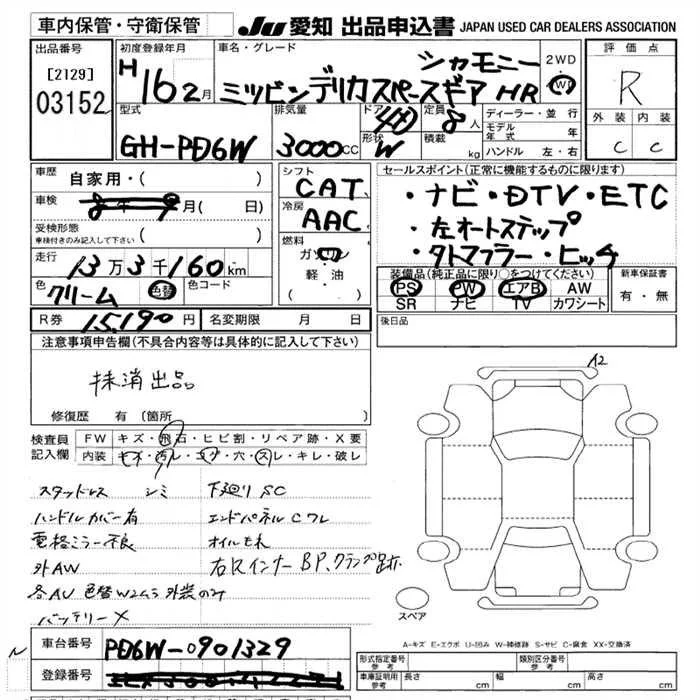 車内保管・守衛保管
JU 愛知 出品申込書 JAPAN USED CAR DEALERS ASSOCIATION
出品番号
[2129]
03152
初度登録年月
H16 2月
車名・グレード
シャモニー
ミツビシデリカスペースギア HR
2WD
4WD
評価点
R
外装 内装
C C
型式
GH-PD6W
排気量
3000CC
ドア
4D
形状
W
定員
8人
積載
kg
ディーラー・並行
モデル年式 年
ハンドル 左・右
車歴 自家用・( )
車検 8年9月( 日)
受検形態
車検付きのみ記入して下さい
走行 13万3千160km
色 クリーム 色替 色コード
シフト
CAT
冷房
AAC
燃料
ガソリン
軽・油
セールスポイント(正常に機能するものに限ります)
・ナビ・DTV・ETC
・左オートステップ
・タトマフラー・ヒッチ
装備品(純正品に限り○をつけてください)
PS PW エアB AW
SR ナビ TV カワシート
新車保証書
有・無
R券 15,190円 名変期限 月 日
後日品
注意事項申告欄(不具合内容等は具体的に記入して下さい)
抹消出品
修復歴 有 (箇所
検査員記入欄
FW キズ・飛石・ヒビ割・リペア跡・X要
内装 キズ・汚レ・コゲ・穴・スレ・キレ・破レ
スタッドレス シミ 下廻りSC
ハンドルカバー有 エンドパネルCワレ
電格ミラー不良 オイルモレ
外AW 右Rインナー BP、クランプ跡
各AU 色替W2ムラ 外装のみ
バッテリーX
A2
スペア
A-キズ E-エクボ U-凹み W-補修跡 S-サビ C-腐食 XX-交換済
車台番号 PD6W-0901329
登録番号
形式指定番号 参考
類別区分番号 参考
車庫証明用 参考
長さ cm 幅 cm 高さ cm